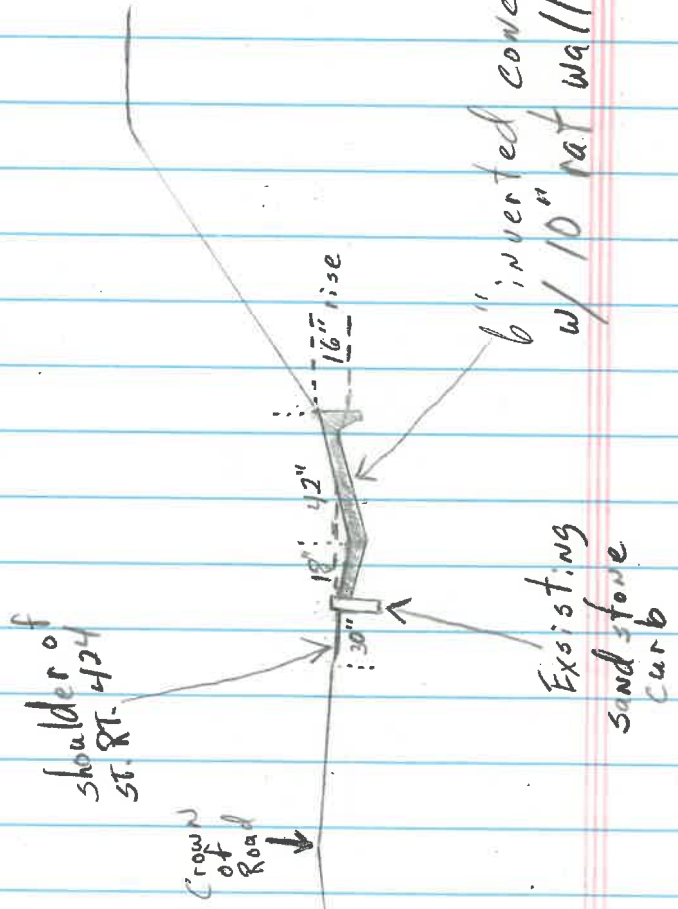 Crown
of
Road
shoulder of
ST. RT. 424
30"
18"
42"
16" rise
Exsisting
sandstone
curb
6" inverted
w/ 10" rat wall